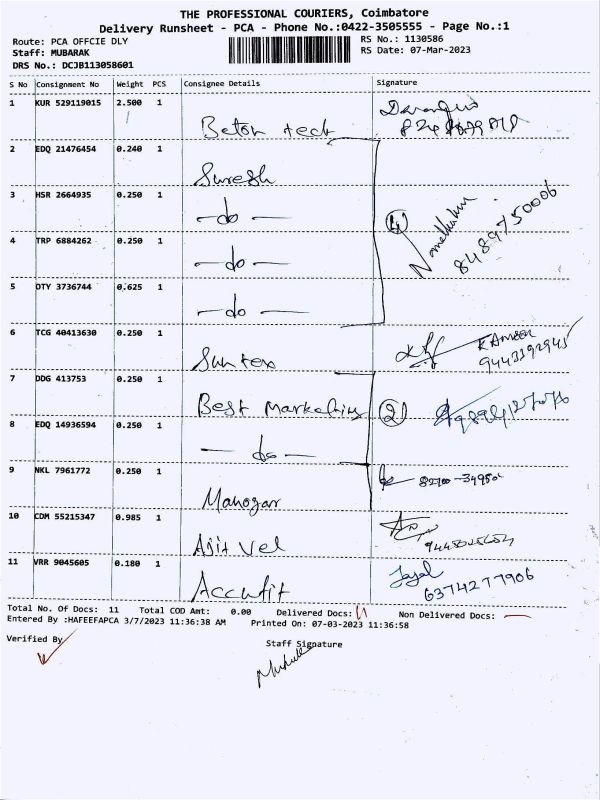 THE PROFESSIONAL COURIERS, Coimbatore
Delivery Runsheet - PCA - Phone No.:0422-3505555 - Page No.:1
Route: PCA OFFCIE DLY
Staff: MUBARAK
DRS No.: DCJB113058601
RS No.: 1130586
RS Date: 07-Mar-2023
S No Consignment No Weight PCS Consignee Details Signature
1 KUR 529119015 2.500 1 Beton tech
2 EDQ 21476454 0.240 1 Suresh
3 HSR 2664935 0.250 1 -do-
4 TRP 6884262 0.250 1 -do- (4) 8489750006
5 DTY 3736744 0.625 1 -do-
6 TCG 40413630 0.250 1 Suntex
7 DDG 413753 0.250 1 Best Marketing (2)
8 EDQ 14936594 0.250 1 -do-
9 NKL 7961772 0.250 1 Manogar
10 CDM 55215347 0.985 1 Ajit Vel
11 VRR 9045605 0.180 1 Accutit 6374277906
Total No. Of Docs: 11 Total COD Amt: 0.00 Delivered Docs: 11 Non Delivered Docs: —
Entered By :HAFEEFAPCA 3/7/2023 11:36:38 AM Printed On: 07-03-2023 11:36:58
Verified By
Staff Signature